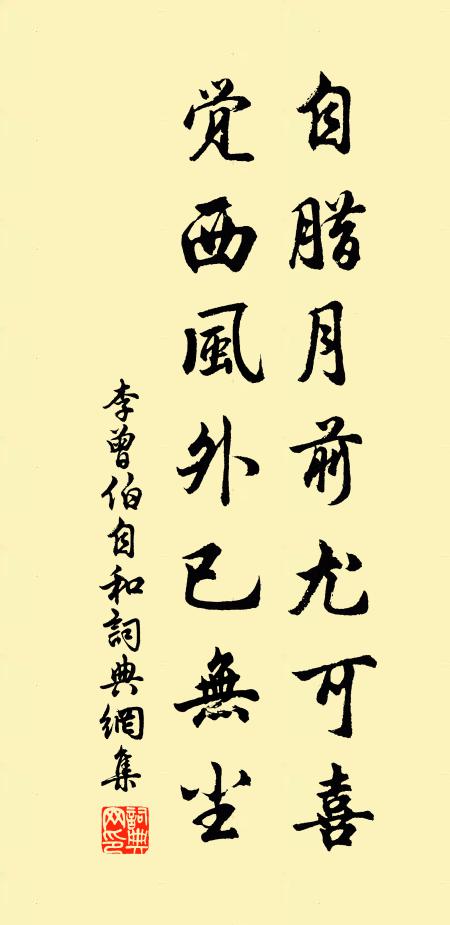 自腊月前尤可喜
觉西風外已無尘
李曾伯自和詞典網集
詞典网印